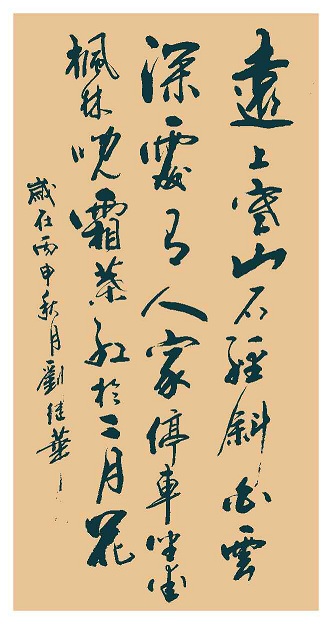 遠上寒山石徑斜白雲
深處有人家停車坐愛
楓林晚霜葉紅於二月花
歲在丙申秋月劉華